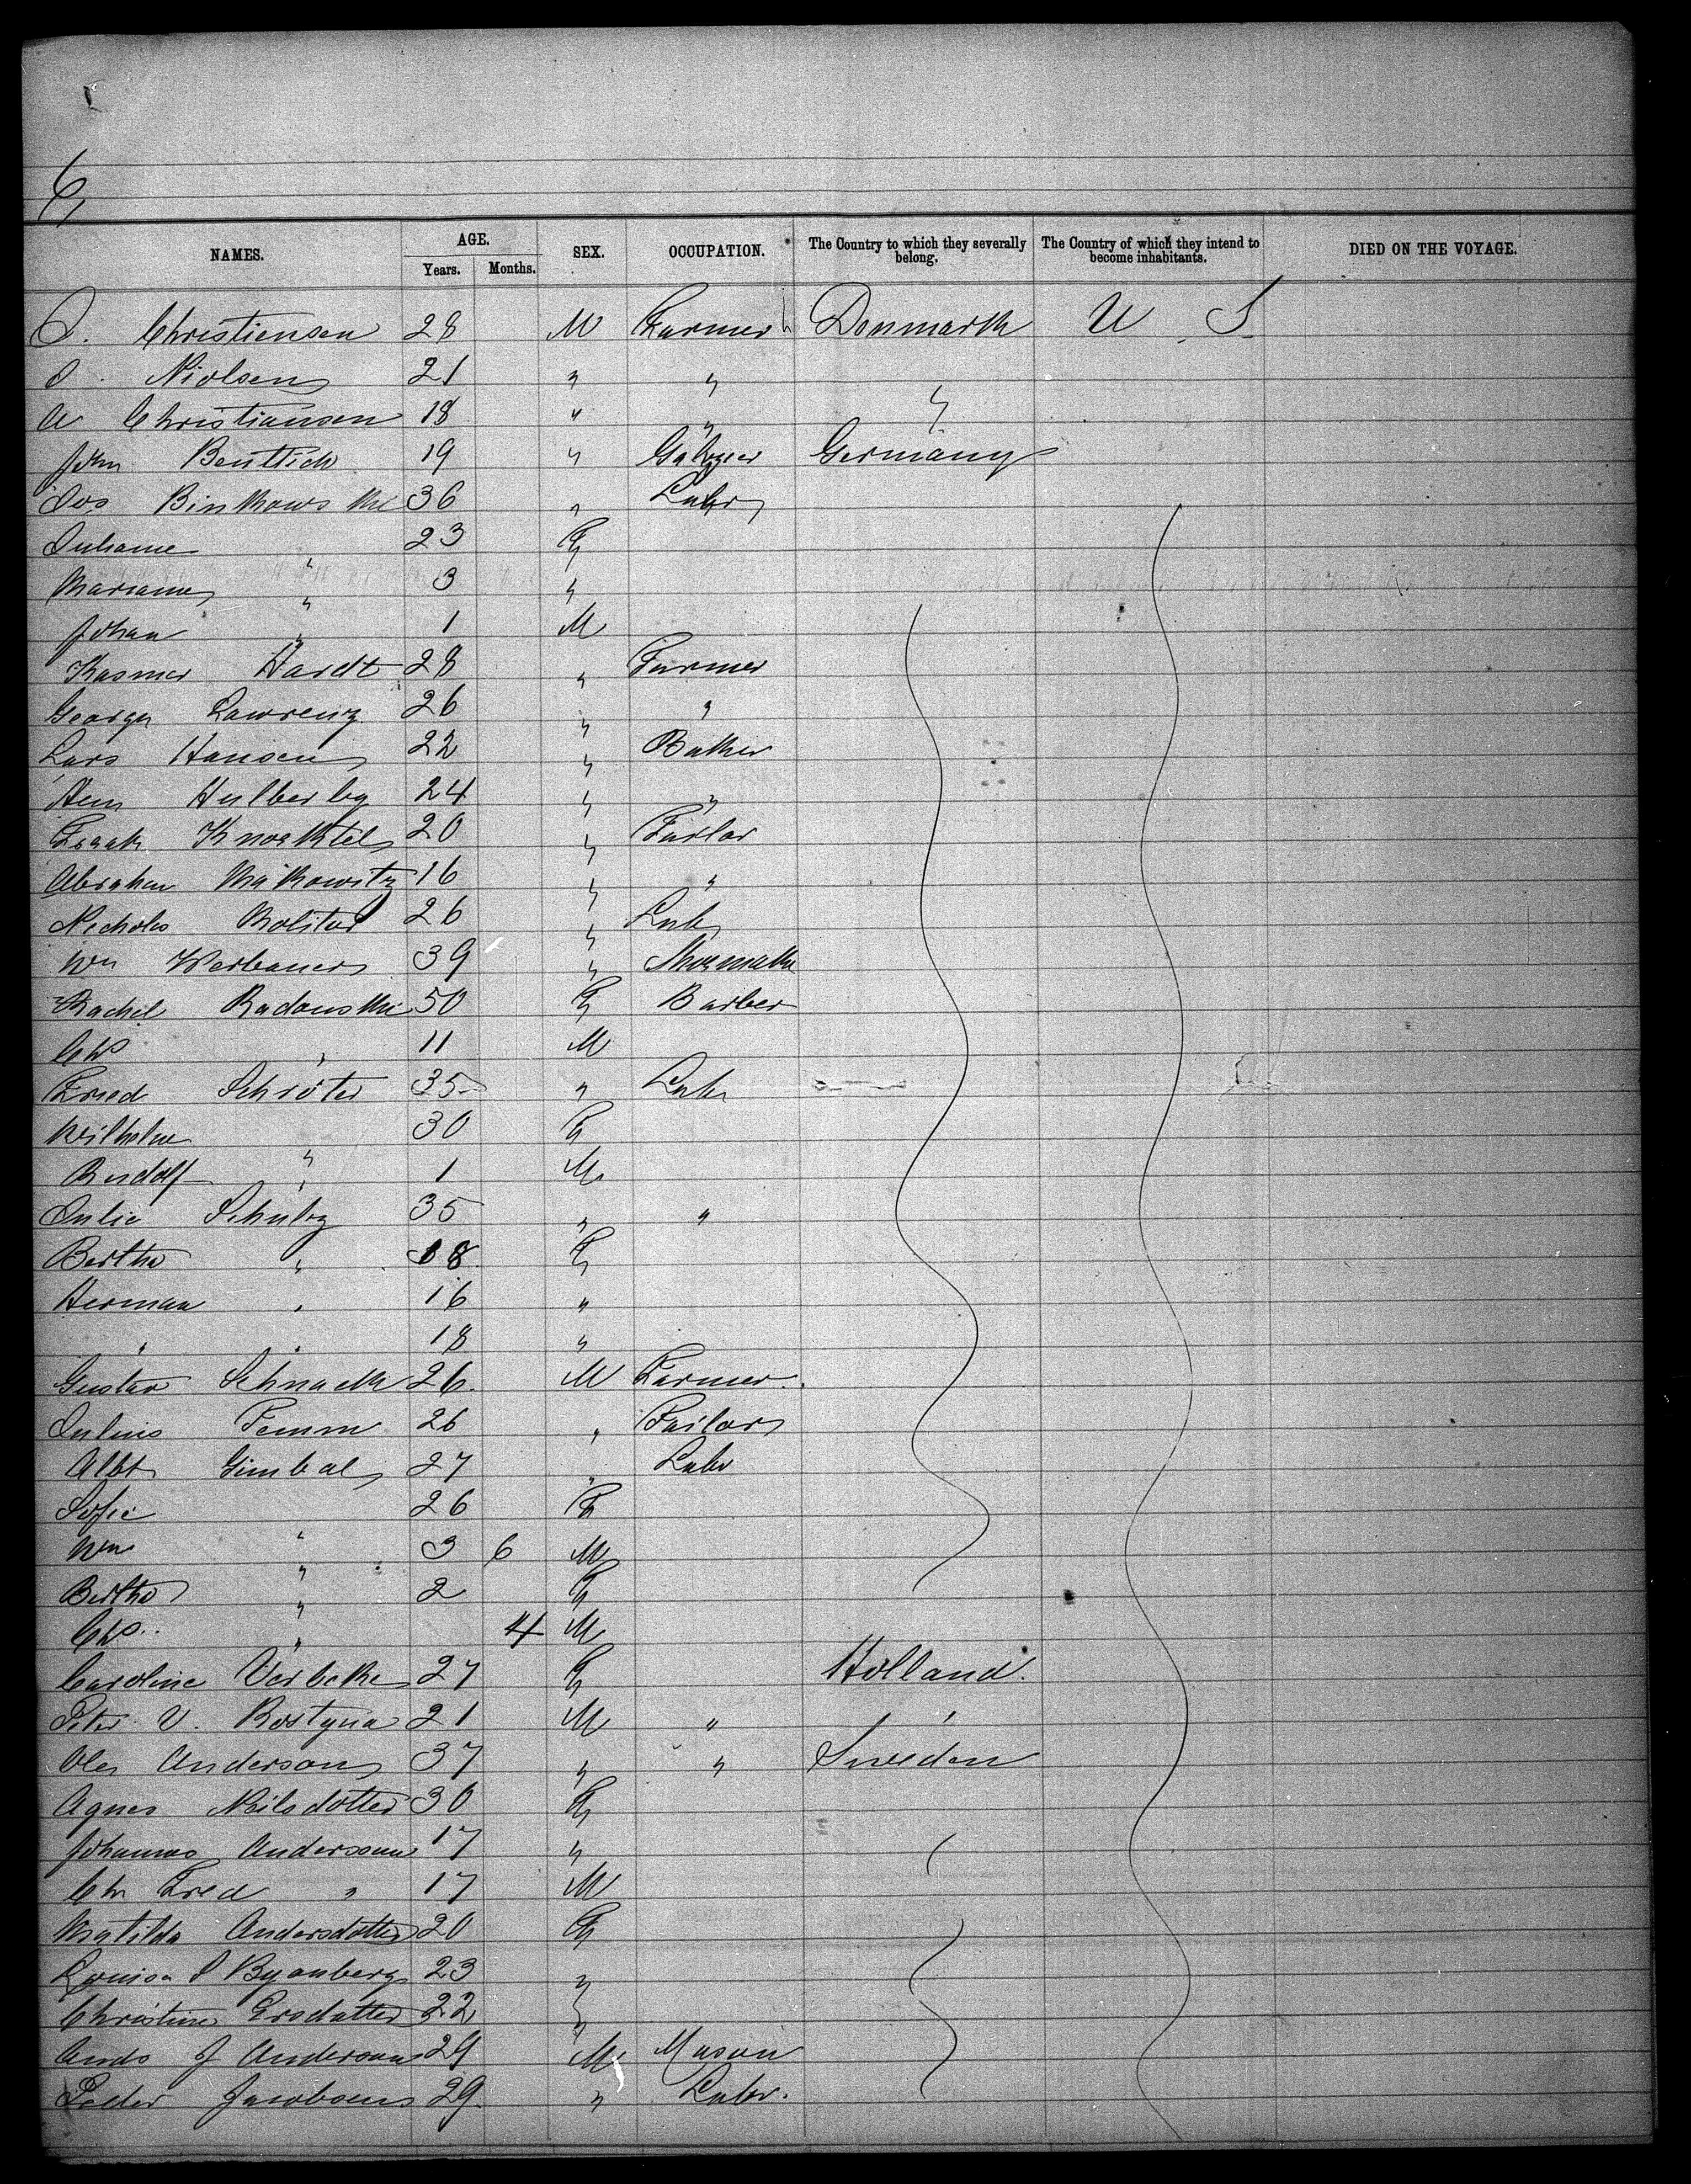 6,
NAMES. AGE. SEX. OCCUPATION. The Country to which they severally belong. The Country of which they intend to become inhabitants. DIED ON THE VOYAGE.
Years. Months.
Christiensen 28 M Farmer Denmark U S
Nielsen 21 " "
A Christiansen 18 " " "
John 19 " Germany
Jos Binkowski 36 " Labr
Juliane " 23 F
Marianne " 3 "
Johan " 1 M
Kasmer Hardt 28 " Farmer
George Lawrenz 26 " "
Lars Hansen 22 " Baker
24 " "
Frank 20 " Tailor
Abraham Makowitz 16 " "
Nicholas Molitor 26 " Labr
Wm 39 "
Rachel Radowski 50 F Barber
Chs " 11 M
Fried Schröter 35 " Labr
Wilhelm " 30 F
Rudolf " 1 M
Julie Schulz 35 " "
Bertha " 18 F
Herman " 16 "
" " 18 "
Gustav Schnack 26 M Farmer
Julius Temm 26 " Tailor
Albt Gimbal 27 " Labr
Sofie " 26 F
Wm " 3 6 M
Bertha " 2 F
Chs " 4 M
Caroline Verbeke 27 F Holland
Peter V. 21 M " "
Ole Anderson 37 " " Sweden
Agnes Nilsdotter 30 F
Johannes Anderssen 17 "
Chr Fred " 17 M
Matilda Andersdotter 20 F
Louisa 23 "
Christine Ersdotter 22 "
Ands J Anderson 29 M Mason
Peder Jacobsen 29 " Labr.